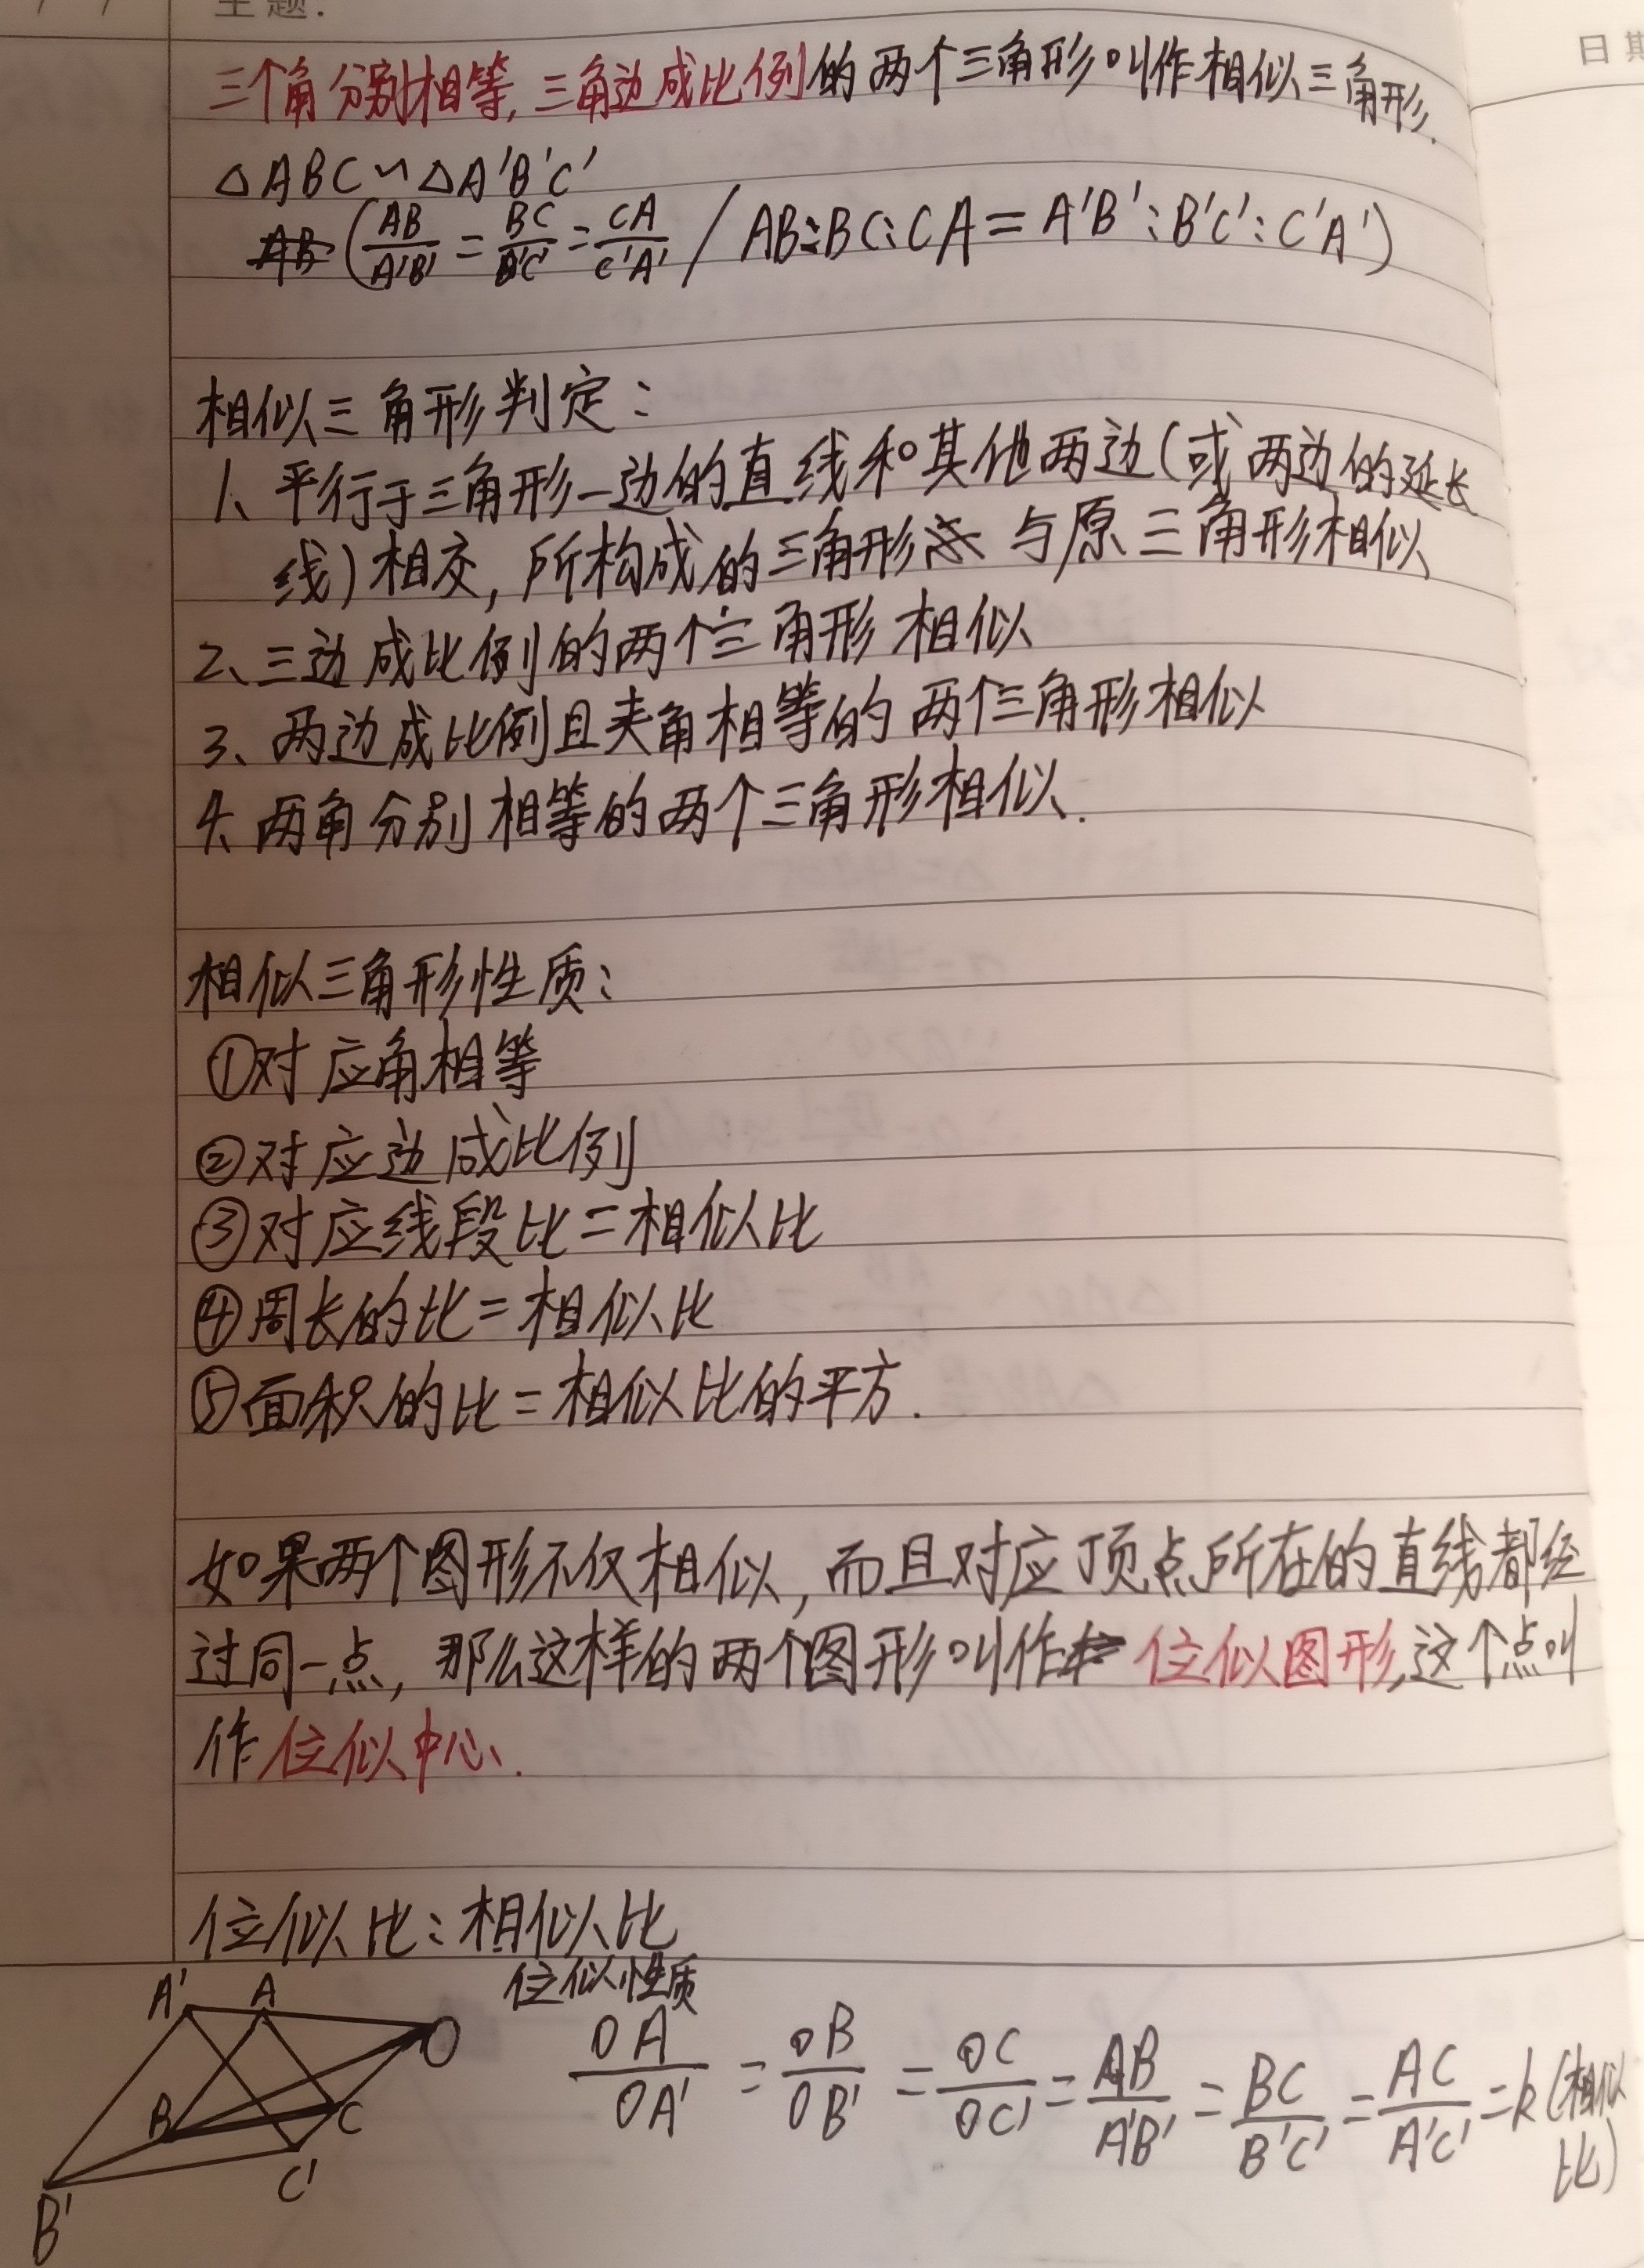 主题:
日期
三个角分别相等,三角边成比例的两个三角形叫作相似三角形.
△ABC∽△A'B'C'
(AB/A'B' = BC/B'C' = CA/C'A' / AB:BC:CA = A'B':B'C':C'A')
相似三角形判定:
1、平行于三角形一边的直线和其他两边(或两边的延长
线)相交,所构成的三角形 与原三角形相似
2、三边成比例的两个三角形相似
3、两边成比例且夹角相等的两个三角形相似
4、两角分别相等的两个三角形相似.
相似三角形性质:
①对应角相等
②对应边成比例
③对应线段比=相似比
④周长的比=相似比
⑤面积的比=相似比的平方.
如果两个图形不仅相似,而且对应顶点所在的直线都经
过同一点,那么这样的两个图形叫作 位似图形,这个点叫
作位似中心.
位似比:相似比
位似性质
OA/OA' = OB/OB' = OC/OC' = AB/A'B' = BC/B'C' = AC/A'C' = k(相似
比)
A' A O
B C
C'
B'